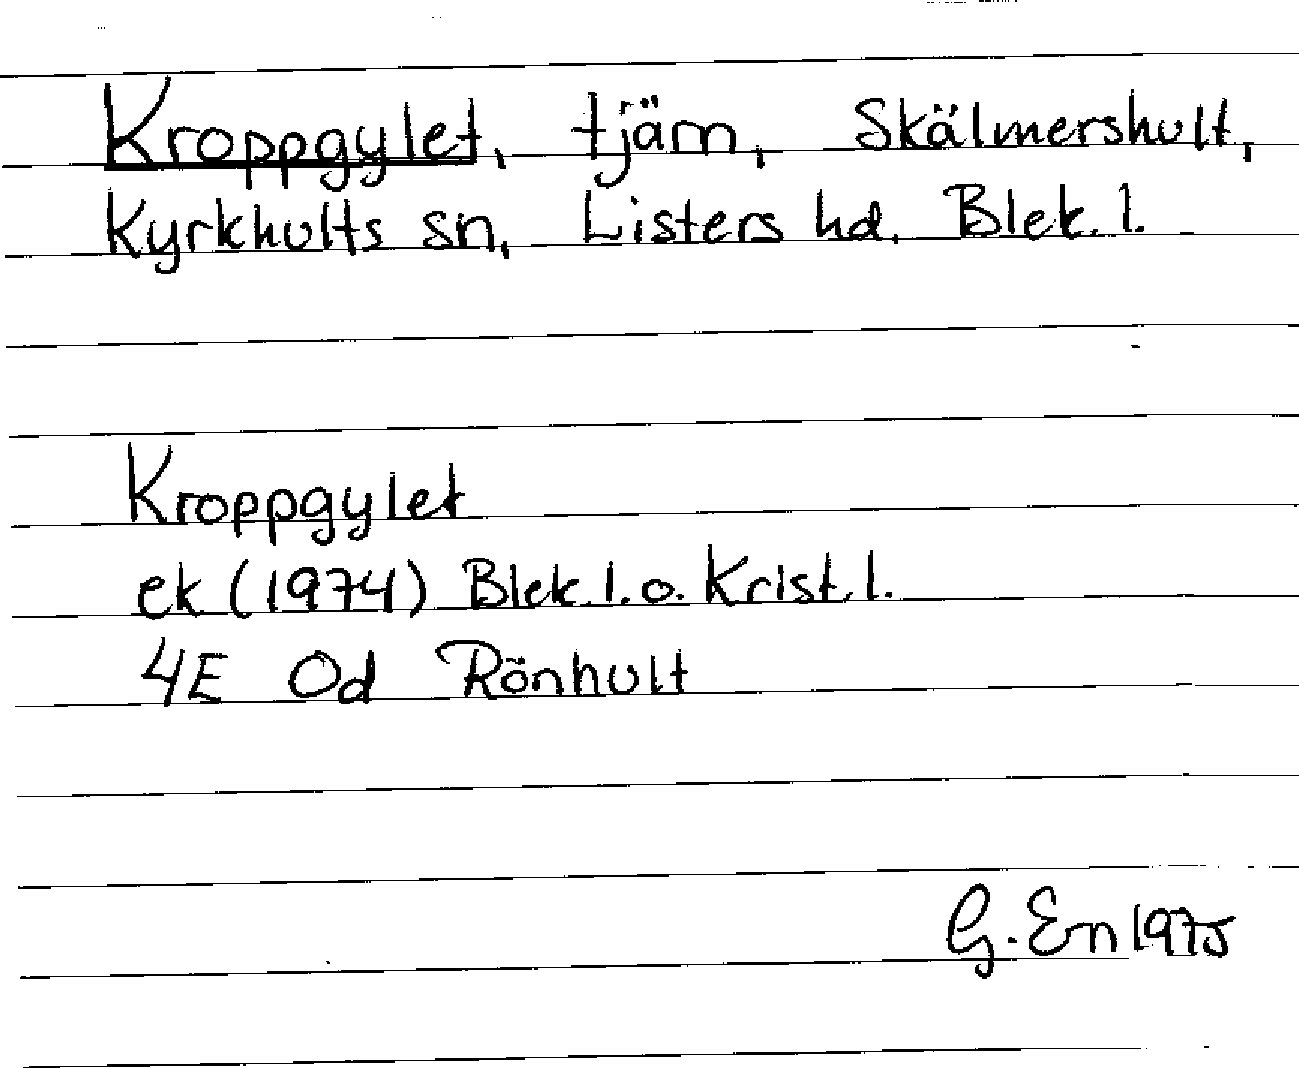 Kroppgylet, tjärn, Skälmershult,
Kyrkhults sn, Listers hd. Blek. l.
Kroppgylet
ek (1974) Blek. l. o. Krist l.
4E Od Rönhult
G. En 1975